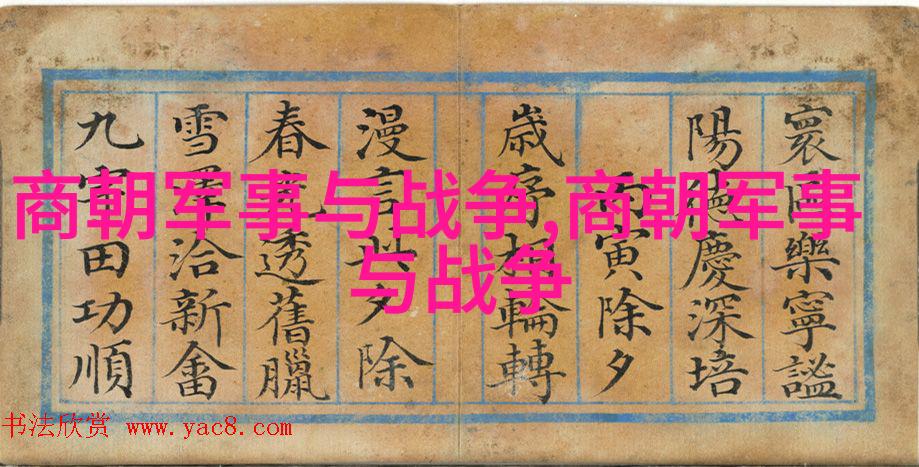 商朝军事与战争,商朝军事
与战争
寰區樂寧謐
陽德慶深培
丙寅除夕
歲序輪轉
漫言夕除
春透舊臘
雪澤洽新畬
九田功順
书法欣赏 www.yac8.com